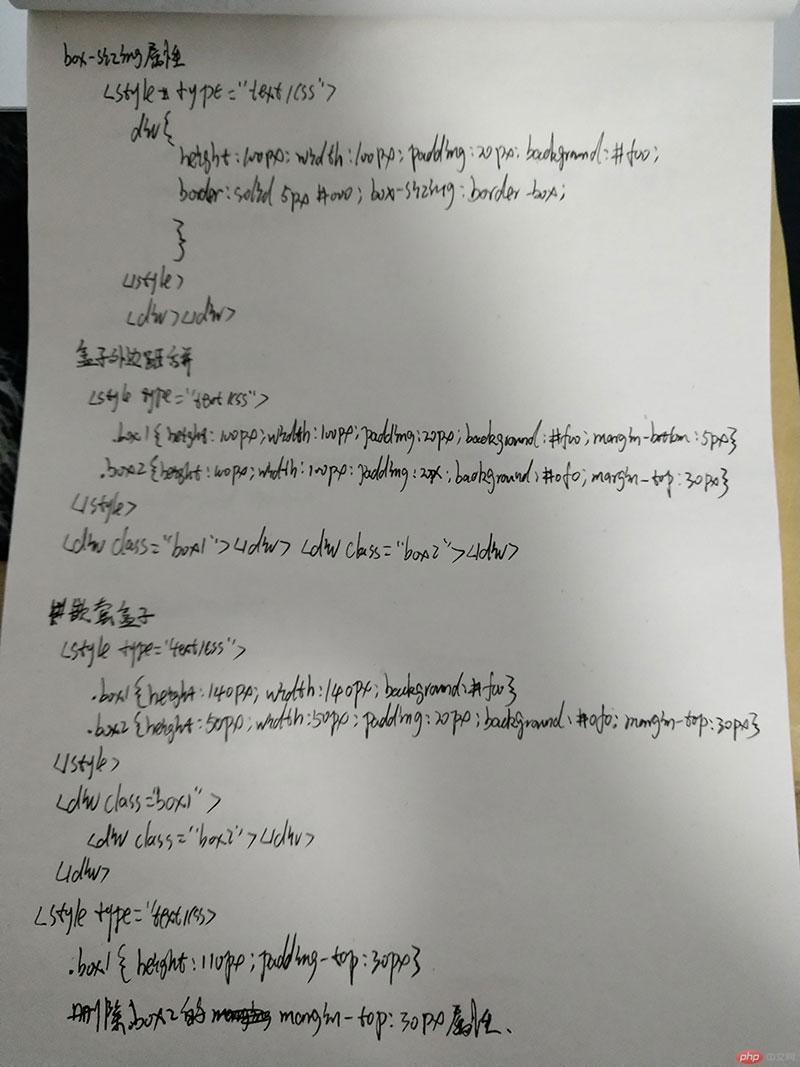 box-sizing属性
<style type="text/css">
div{
height:100px; width:100px; padding:20px; background:#f00;
border:solid 5px #000; box-sizing:border-box;
}
</style>
<div></div>
盒子外边距合并
<style type="text/css">
.box1{height:100px;width:100px;padding:20px;background:#f00;margin-bottom:5px}
.box2{height:100px;width:100px;padding:20px;background:#0f0;margin-top:30px}
</style>
<div class="box1"></div> <div class="box2"></div>
嵌套盒子
<style type="text/css">
.box1{height:140px; width:140px; background:#f00}
.box2{height:50px;width:50px; padding:20px; background:#0f0; margin-top:30px}
</style>
<div class="box1">
<div class="box2"></div>
</div>
<style type="text/css>
.box1{height:110px;padding-top:30px}
删除.box2的 margin-top:30px属性.
php 中文网